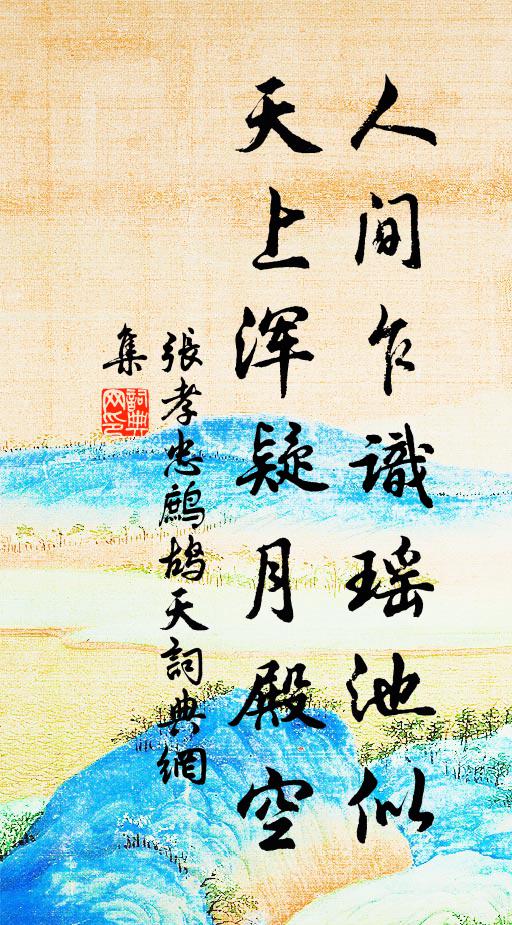 人间乍識瑶池似
天上浑疑月殿空
張孝忠鷓鴣天詞典網
集
詞典
网印